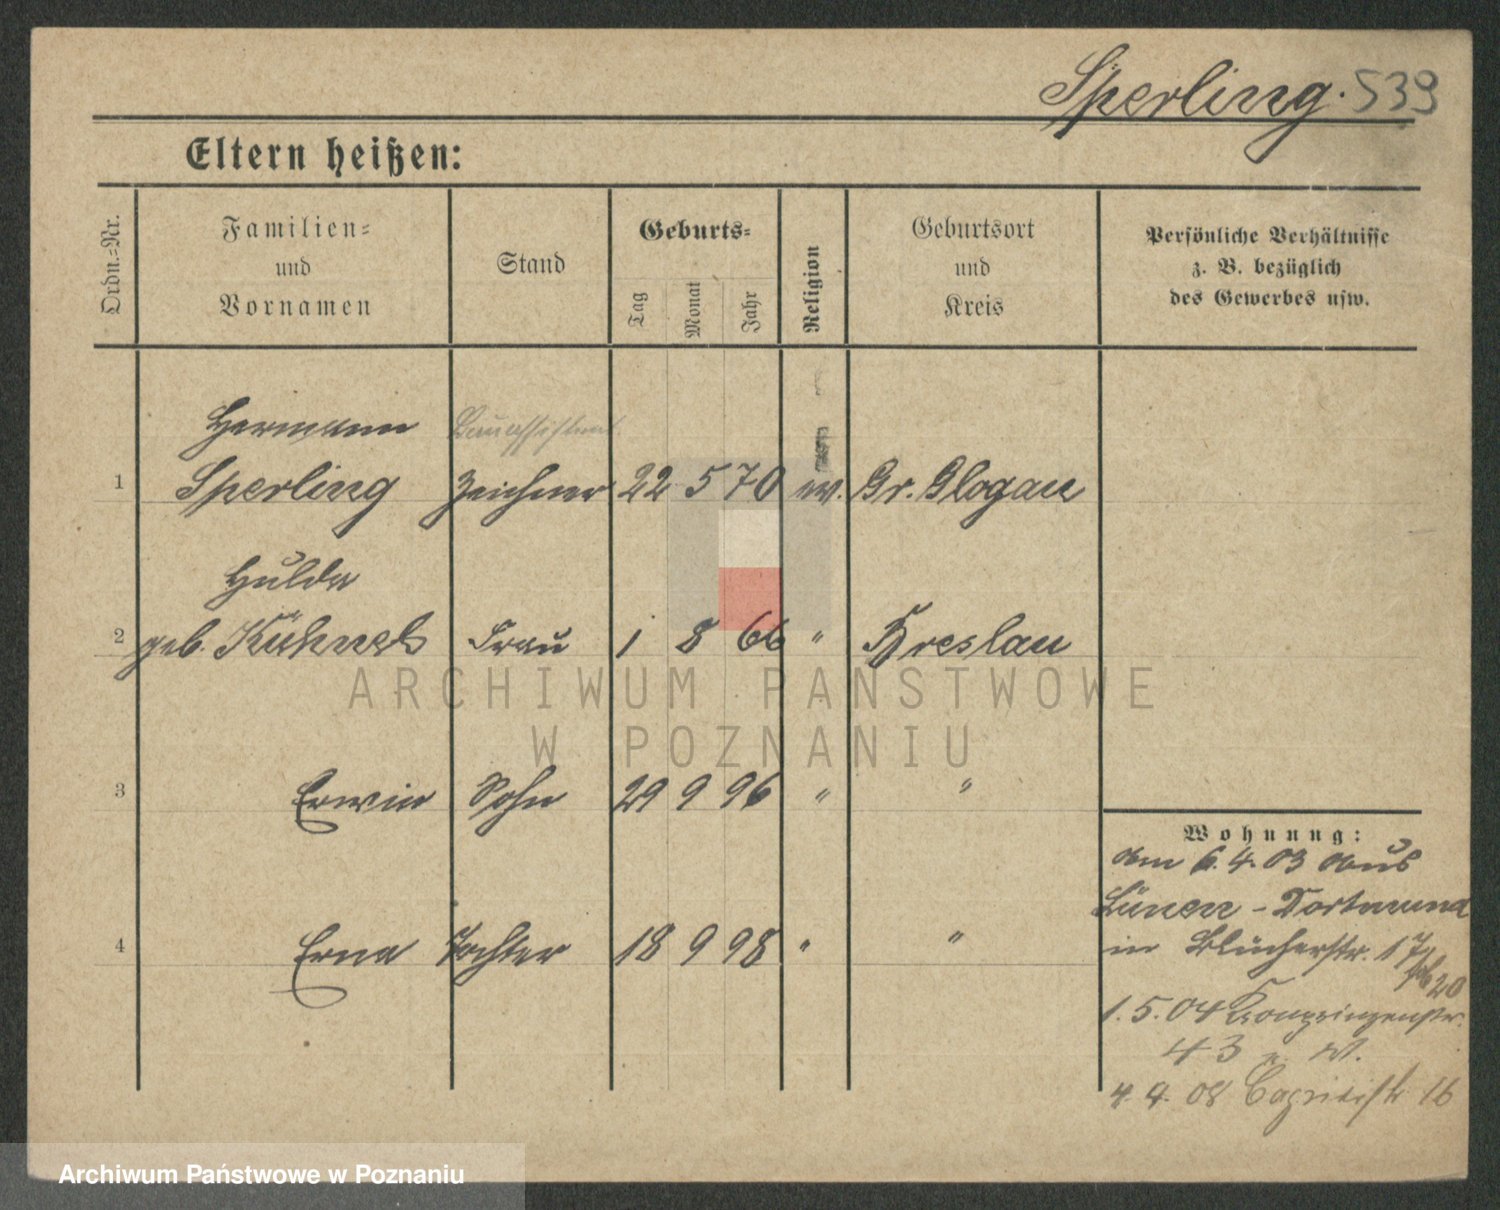 Sperling. 539
Eltern heißen:
Ordn.-Nr.
Familien-
und
Vornamen
Stand
Geburts-
Tag
Monat
Jahr
Religion
Geburtsort
und
Kreis
Persönliche Verhältnisse
z. B. bezüglich
des Gewerbes usw.
Hermann Bauassistent
1 Sperling Zeichner 22 5 70 ev. Gr. Glogau
Hulda
2 geb. Frau 1 8 66 " Breslau
3 Erwin Sohn 29 9 96 " "
4 Erna Tochter 18 9 98 " "
Wohnung:
am 6.4.03 aus
Lünen - Dortmund
in Blücherstr. 17
20
1.5.04 Kronprinzenstr.
43
4.4.08 Caprivistr. 16
ARCHIWUM PAŃSTWOWE
W POZNANIU
Archiwum Państwowe w Poznaniu